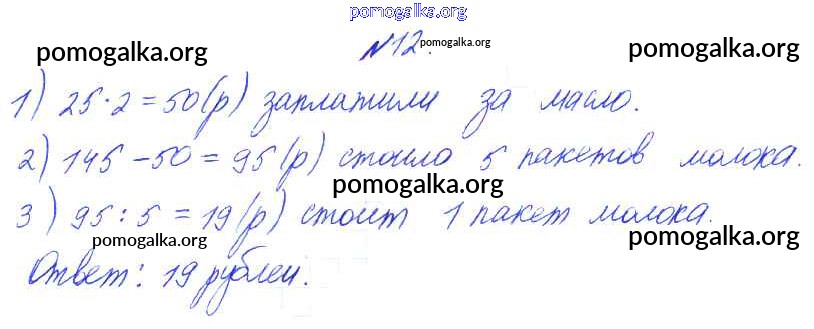 pomogalka.org
pomogalka.org №12. pomogalka.org pomogalka.org
1) 25·2=50(р) заплатили за масло.
2) 145-50=95(р) стоило 5 пакетов молока.
pomogalka.org
3) 95:5=19(р) стоит 1 пакет молока.
pomogalka.org pomogalka.org
Ответ: 19 рублей.